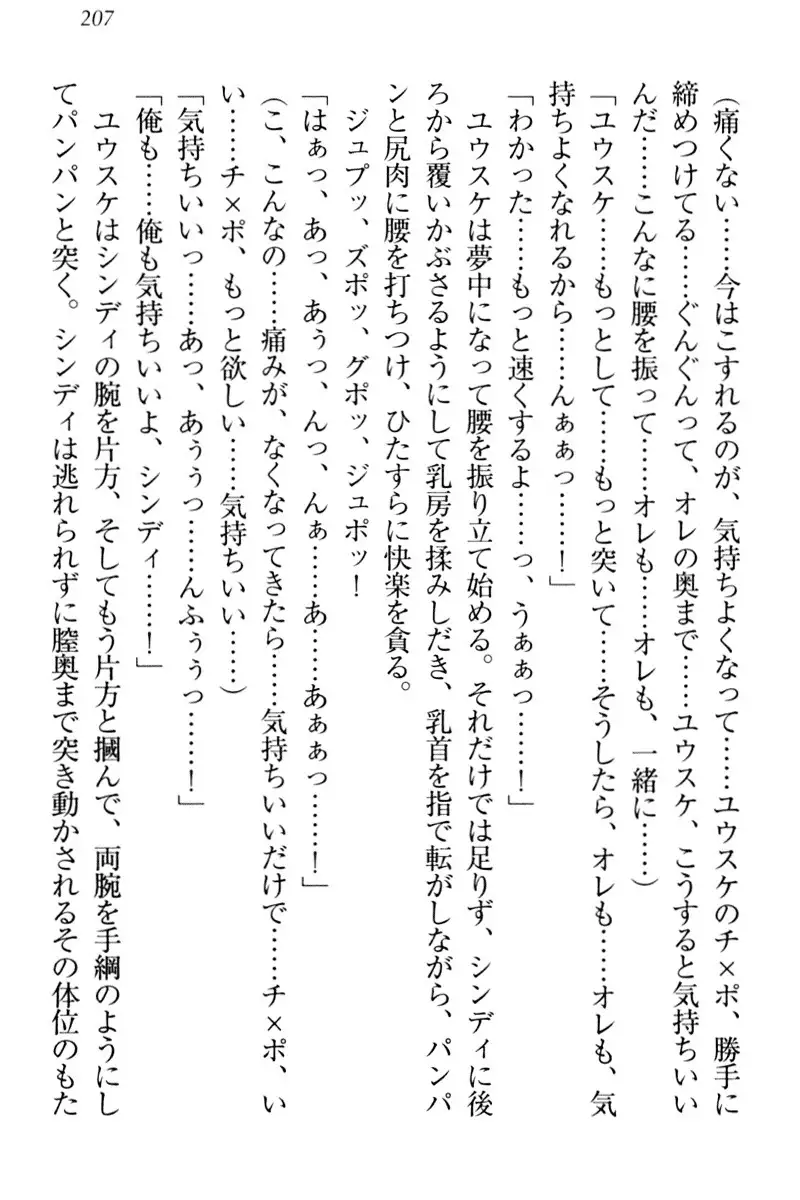 207
（痛くない……今はこすれるのが、気持ちよくなって……ユウスケのチ×ポ、勝手に
締めつけてる……ぐんぐんって、オレの奥まで……ユウスケ、こうすると気持ちいい
んだ……こんなに腰を振って……オレも……オレも、一緒に……）
「ユウスケ……もっとして……もっと突いて……そうしたら、オレも……オレも、気
持ちよくなれるから……んぁぁっ……！」
「わかった……もっと速くするよ……っ、うぁぁっ……！」
ユウスケは夢中になって腰を振り立て始める。それだけでは足りず、シンディに後
ろから覆いかぶさるようにして乳房を揉みしだき、乳首を指で転がしながら、パンパ
ンと尻肉に腰を打ちつけ、ひたすらに快楽を貪る。
ジュプッ、ズポッ、グポッ、ジュポッ！
「はぁっ、あっ、あぅっ、んっ、んぁ……あ……あぁぁっ……！」
（こ、こんなの……痛みが、なくなってきたら……気持ちいいだけで……チ×ポ、い
い……チ×ポ、もっと欲しい……気持ちいい……）
「気持ちいいっ……あっ、あぅぅっ……んふぅぅっ……！」
「俺も……俺も気持ちいいよ、シンディ……！」
ユウスケはシンディの腕を片方、そしてもう片方と摑んで、両腕を手綱のようにし
てパンパンと突く。シンディは逃れられずに膣奥まで突き動かされるその体位のもた